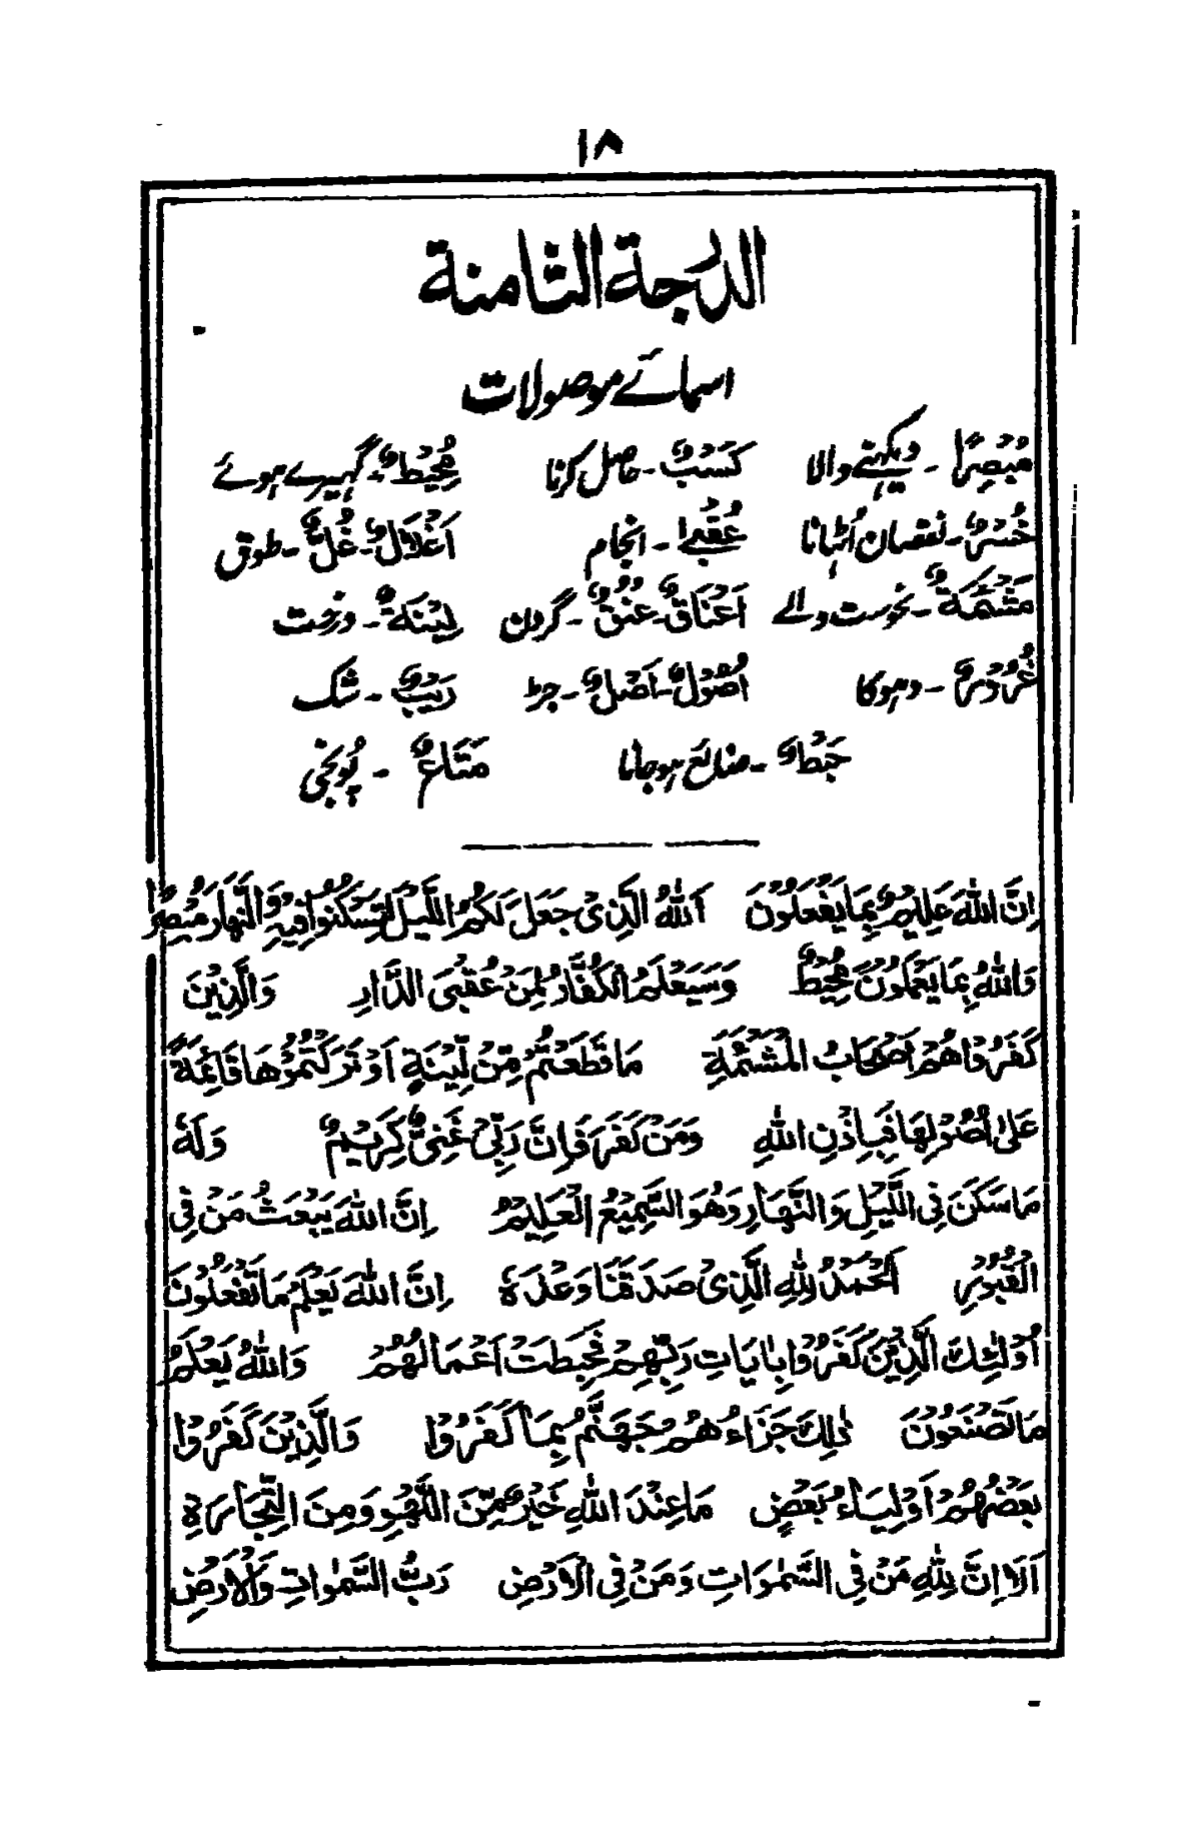 ۱۸
الدرجة الثامنة
اسمائے موصولات
مُبْصِرًا ۔ دیکھنے والا کَسْبٌ ۔ حاصل کرنا مُحِیْطٌ ۔ گہیرے ہوئے
خُسْرٌ ۔ نقصان اُٹہانا عُقْبےٰ ۔ انجام اَغْلَالٌ ۔ غُلٌّ ۔ طوق
مَشْئَمَةٌ ۔ نحوست والے اَعْنَاقٌ ۔ عُنُقٌ ۔ گردن لِیْنَةٌ ۔ درخت
غُرُوْرٌ ۔ دہوکا اُصُوْلٌ ۔ اَصْلٌ ۔ جڑ رَیْبٌ ۔ شک
حَبْطٌ ۔ ضائع ہوجانا مَتَاعٌ ۔ پُونجی
اِنَّ اللّٰهَ عَلِیْمٌ بِمَا یَفْعَلُوْنَ اَللّٰهُ الَّذِیْ جَعَلَ لَکُمُ اللَّیْلَ لِتَسْکُنُوْا فِیْهِ وَالنَّهَارَ مُبْصِرًا
وَاللّٰهُ بِمَا یَعْمَلُوْنَ مُحِیْطٌ وَسَیَعْلَمُ الْکُفَّارُ لِمَنْ عُقْبَی الدَّارِ وَالَّذِیْنَ
کَفَرُوْا هُمْ اَصْحَابُ الْمَشْئَمَةِ مَا قَطَعْتُمْ مِّنْ لِّیْنَةٍ اَوْ تَرَکْتُمُوْهَا قَائِمَةً
عَلٰی اُصُوْلِهَا فَبِاِذْنِ اللّٰهِ وَمَنْ کَفَرَ فَاِنَّ رَبِّیْ غَنِیٌّ کَرِیْمٌ وَلَهٗ
مَا سَکَنَ فِی اللَّیْلِ وَالنَّهَارِ وَهُوَ السَّمِیْعُ الْعَلِیْمُ اِنَّ اللّٰهَ یَبْعَثُ مَنْ فِی
الْقُبُوْرِ اَلْحَمْدُ لِلّٰهِ الَّذِیْ صَدَقَنَا وَعْدَهٗ اِنَّ اللّٰهَ یَعْلَمُ مَا تَفْعَلُوْنَ
اُوْلٰئِكَ الَّذِیْنَ کَفَرُوْا بِاٰیَاتِ رَبِّهِمْ فَحَبِطَتْ اَعْمَالُهُمْ وَاللّٰهُ یَعْلَمُ
مَا تَصْنَعُوْنَ ذٰلِكَ جَزَاءُهُمْ جَهَنَّمُ بِمَا کَفَرُوْا وَالَّذِیْنَ کَفَرُوْا
بَعْضُهُمْ اَوْلِیَاءُ بَعْضٍ مَا عِنْدَ اللّٰهِ خَیْرٌ مِّنَ اللَّهْوِ وَمِنَ التِّجَارَةِ
اَلَا اِنَّ لِلّٰهِ مَنْ فِی السَّمٰوَاتِ وَمَنْ فِی الْاَرْضِ رَبُّ السَّمٰوَاتِ وَالْاَرْضِ